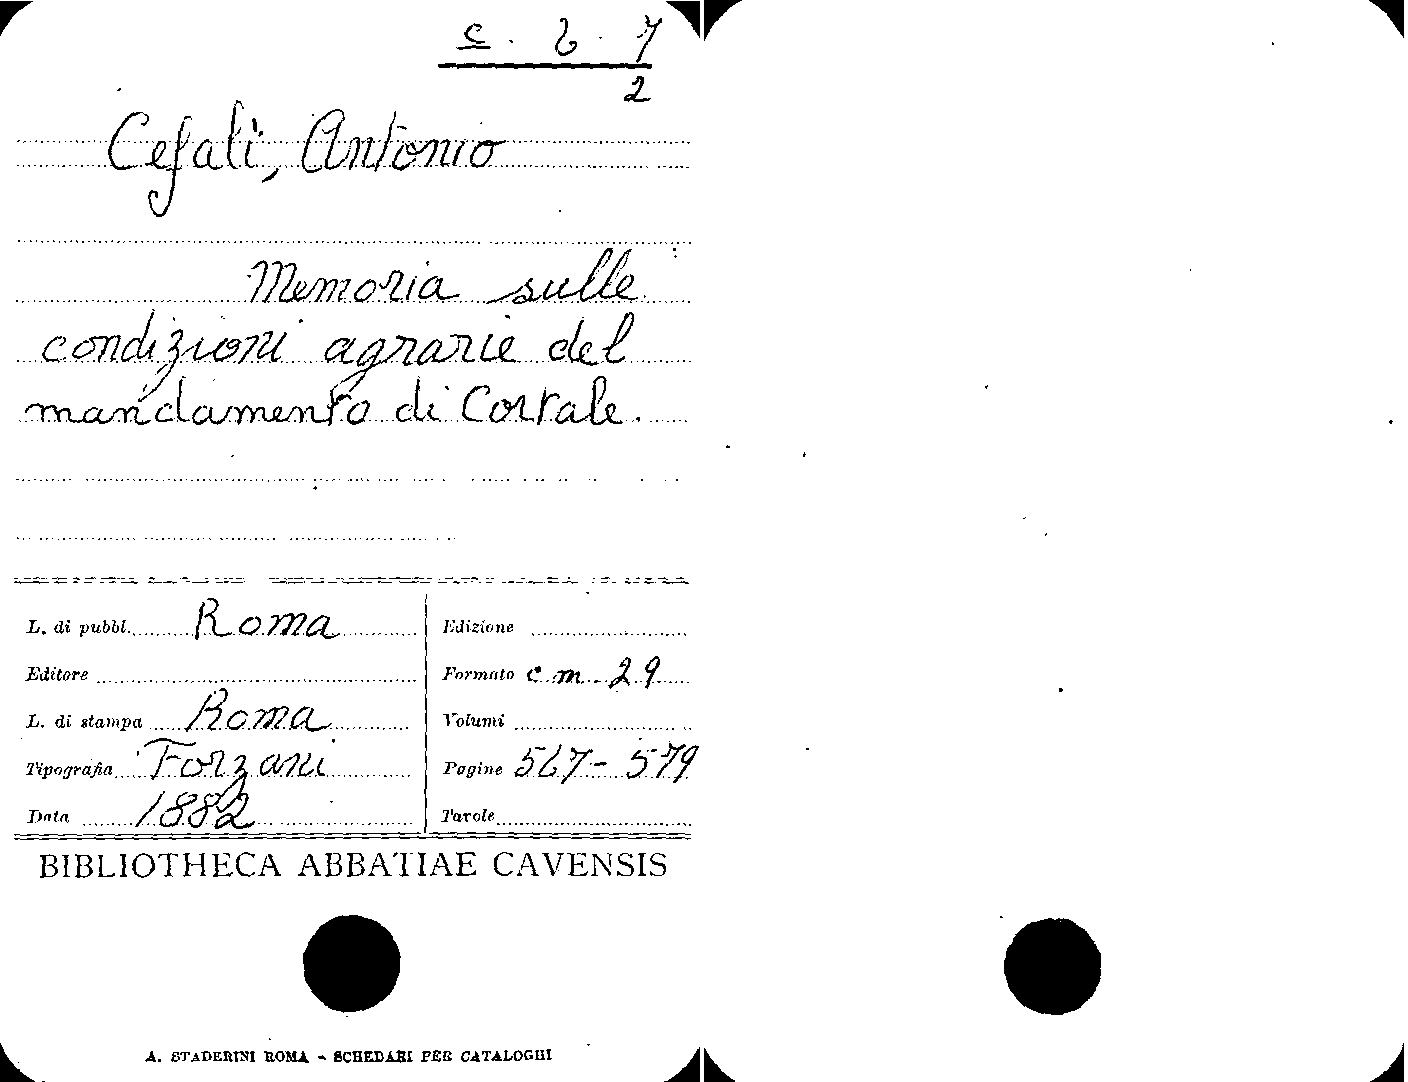 c. 6. 7
2
Cefalì, Antonio
Memoria sulle
condizioni agrarie del
mandamento di Cortale.
L. di pubbl. Roma
Editore
L. di stampa Roma
Tipografia Forzani
Data 1882
Edizione
Formato cm. 29
Volumi
Pagine 567-579
Tavole
BIBLIOTHECA ABBATIAE CAVENSIS
A. STADERINI ROMA - SCHEDARI PER CATALOGHI